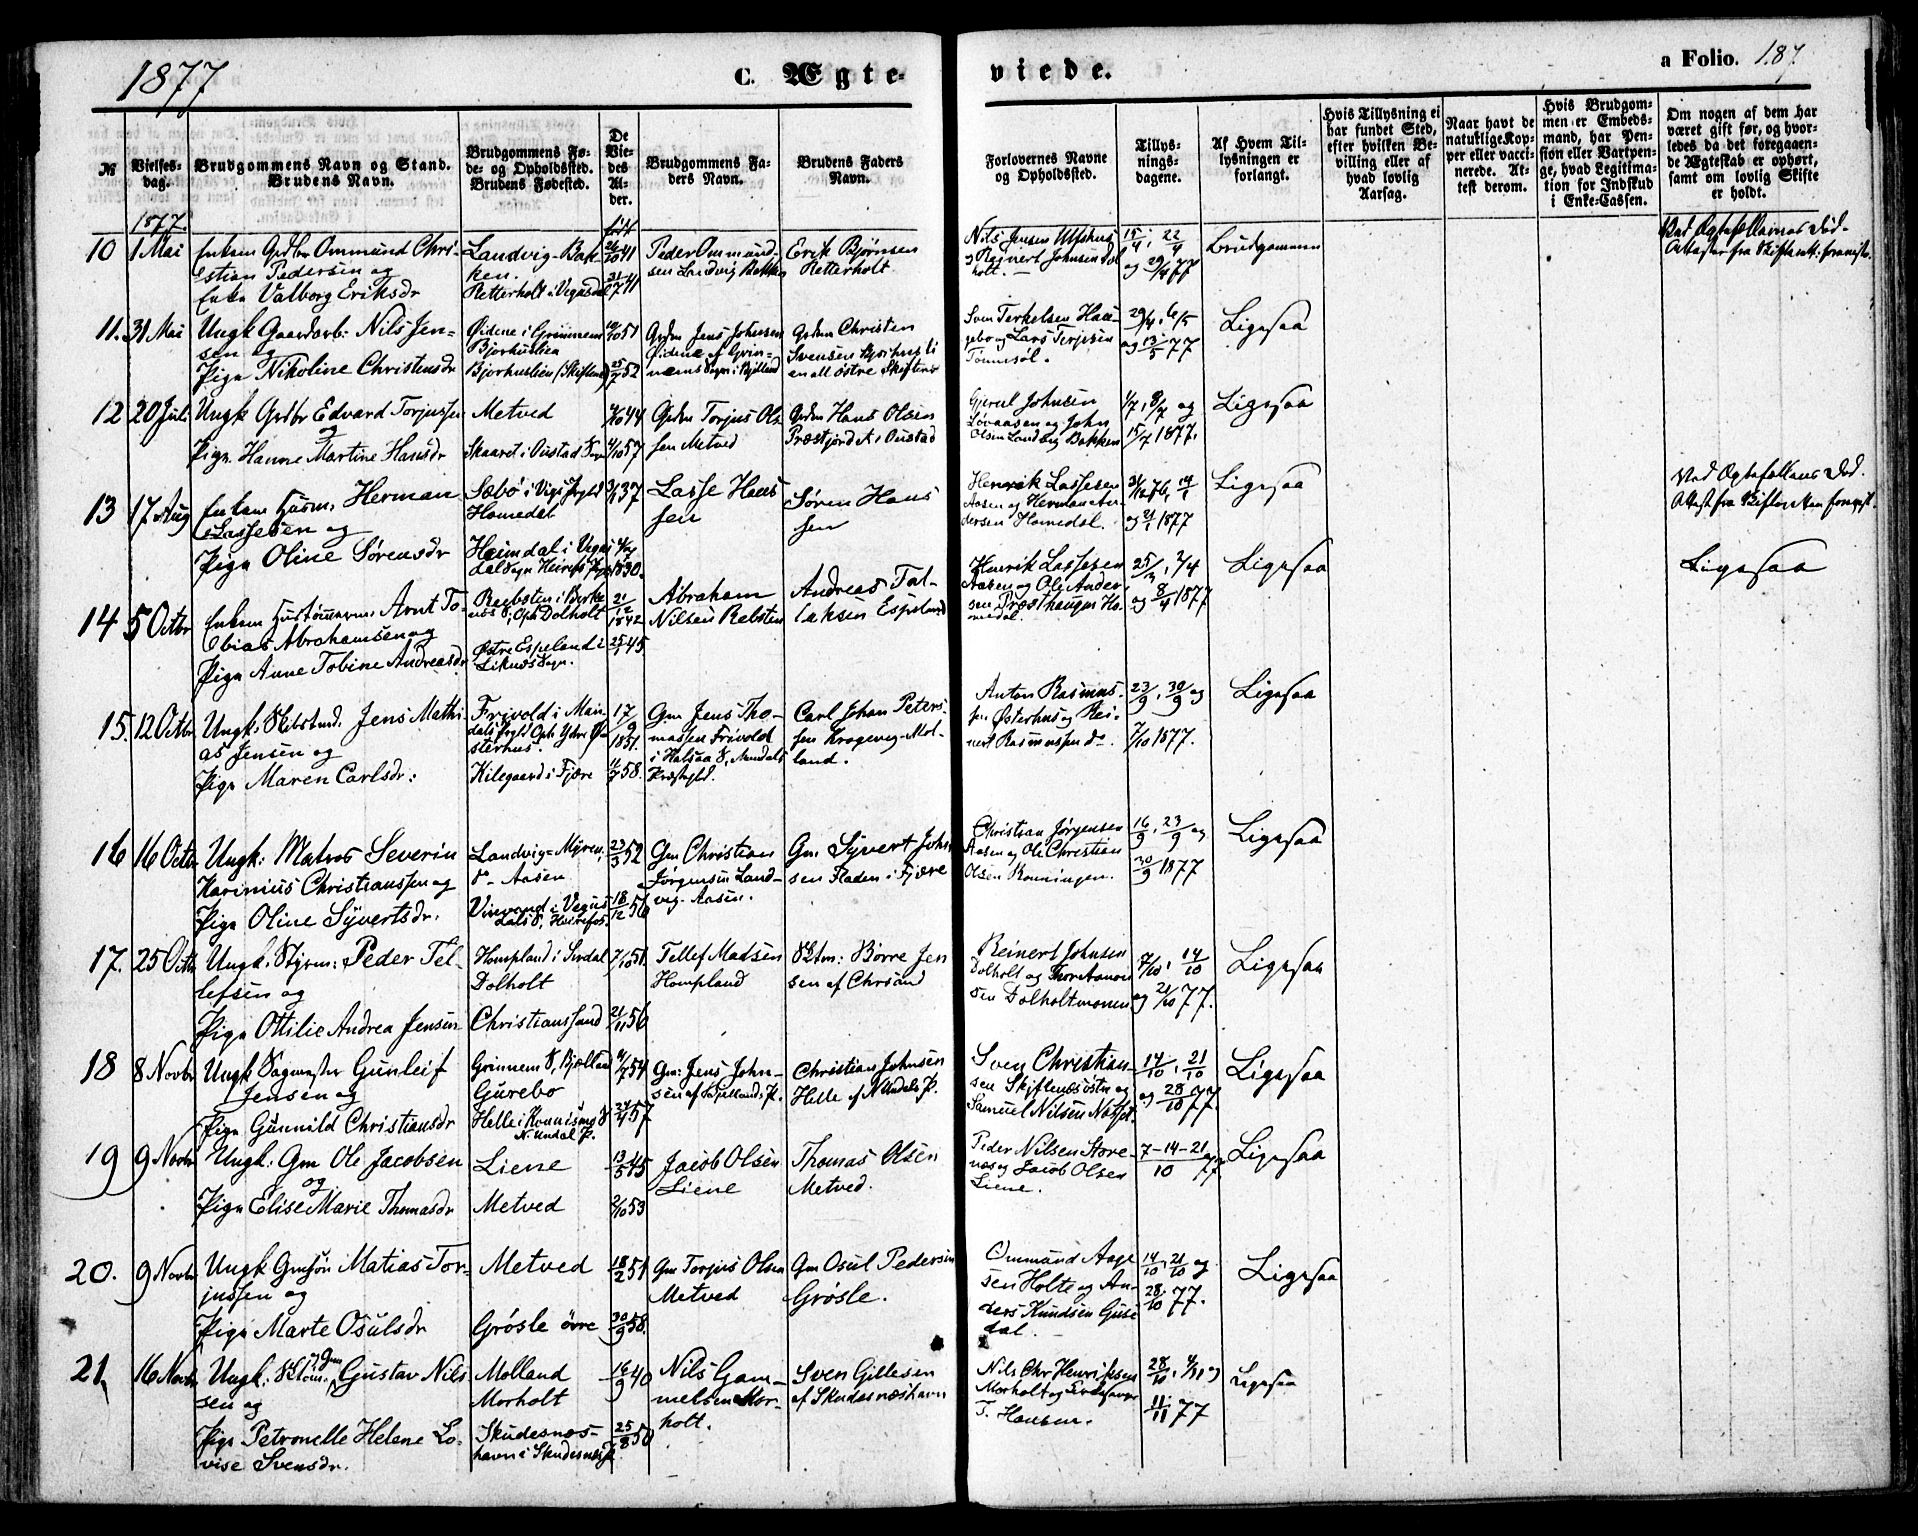 1877
C. Ægte-
viede.
a Folio. 187.
№
Vielses-
dag.
Brudgommens Navn og Stand.
Brudens Navn.
Brudgommens Fø-
de- og Opholdssted.
Brudens Fødested.
De
Vie-
des
Al-
der.
Brudgommens Fa-
ders Navn.
Brudens Faders
Navn.
Forlovernes Navne
og Opholdssted.
Tillys-
nings-
dagene.
Af Hvem Til-
lysningen er
forlangt.
Hvis Tillysning ei
har fundet Sted,
efter hvilken Be-
villing eller af
hvad lovlig
Aarsag.
Naar havt de
naturlige Kop-
per eller vacci-
nerede. At-
test derom.
Hvis Brudgom-
men er Embeds-
mand, har Pen-
sion eller Vartpen-
ge, hvad Legitima-
tion for Indskud
i Enke-Cassen.
Om nogen af dem har
været gift før, og hvor-
ledes da det foregaaen-
de Ægteskab er ophørt,
samt om lovlig Skifte
er holdt.
1877.
10 1 Mai
Enkem Grdbr Ommund Chri-
stian Pedersen og
Enke Valborg Eriksdr
Landvig-Bak-
ken.
Retterholt i Vegusdal
26/10 41
21/7 41
Peder Ommund-
sen Landvig Bakken
Erik Bjørnsen
Retterholt
Nils Jensen Ulfshus
og Reinert Johnsen Dol
holt.
15/4, 22/4
og 29/4 77
Brudgommen
Ved Ægtefællernes Død.
Attester fra Skifteretten: foreviste.
11. 31 Mai
Ungk Gaardarb: Nils Jen-
sen og
Pige Nikoline Christensdr
Øidene i Grinnems
Bjorhuslien
Bjorhuslien (Skiftenes)
10/10 51
25/7 52
Grdm Jens Johnsen
Øidene af Grin-
nems Sogn i Bjelland
Grdm Christen
Svensen Bjorhusli
en all østre Skiftenes
Sven Terkelsen Haa-
gebo og Lars Terjesen
Tønnesøl.
29/4, 6/5
og 13/5 77
Ligesaa
12 20 Juli
Ungk Grdbr Edvard Torjussen
og
Pige Hanne Martine Hansdr
Metved
Skaaret i Øiestad Sogn
/10 44
4/10 57
Grdm Torjus Ol-
sen Metved
Grdm Hans Olsen
Præstjordet i Øiestad
Gjerul Johnsen
Løvaasen og John
Olsen Landvig Bakken
1/7, 8/7 og
15/7 1877.
Ligesaa
13 17 Aug
Enkem Husm. Herman
Lassesen og
Pige Oline Sørensdr
Sæbø i Vigs Prgld
Homedal
Heimdal i Vegus
dal Sogn Hereføs Prgld
3/1 37
1830.
Lasse Han
sen
Søren Han
sen
Henrik Lassesen
Aasen og Herman An-
dersen Homedal.
31/12 76, 14/1
og 21/1 1877
Ligesaa
Ved Ægtefællens Død.
Attest fra Skifteretten forevist.
14 5 Octbr
Enkem Hustømmerm. Arnt To-
bias Abrahamsen og
Pige Anne Tobine Andreasdr
Rebsten i Birke
næs S, Oph Dolholt
Østre Espeland i
Liknes Sogn.
21/12 1842
25/1 45
Abraham
Nilsen Rebsten
Andreas Tol-
laksen Espeland
Henrik Lassesen
Aasen og Ole Ander-
sen Præsthaugen Ho-
medal.
25/3, 2/4
og 8/4 1877
Ligesaa
Ligesaa
15. 12 Octbr
Ungk: Skibstmd. Jens Mathi-
as Jensen og
Pige Maren Carlsdr:
Frivold i Man-
dals Prgld Oph Ydre Ø-
sterhus.
Kilegaard i Fjære
17/9 1851.
11/7 58.
Gm Jens Tho-
massen Frivold
i Halsaa S, Mandals
Præstgld.
Carl Johan Peters-
sen Kragevig-Mol-
land.
Anton Rasmus-
sen Østerhus og Rei-
nert Rasmussen do.
23/9, 30/9 og
7/10 1877.
Ligesaa
16 16 Octbr
Ungk: Matros Severin
Karinius Christianssen og
Pige Oline Syvertsdr.
Landvig-Myren,
do- Aasen
Vinvand i Vegus
dals S, Hereføs.
23/3 52
18/12 56
Gm Christian
Jørgensen Land-
vig-Aasen.
Gm. Syvert John-
sen Fladen i Fjære
Christian Jørgensen
Aasen og Ole Christian
Olsen Rønningen.
16/9, 23/9 og
30/9 1877
Ligesaa
17. 25 Octbr
Ungk. Styrm: Peder Tel-
lefsen og
Pige Ottilie Andrea Jensen
Hompland i Sirdal
Dolholt
Christianssand
7/10 51.
21/11 56
Tellef Madsen
Hompland
Sktm: Børre Jen
sen af Chrsand
Reinert Johnsen
Dolholt og Thore Aanon
sen Dolholtmonen
7/10, 14/10
og 21/10 77.
Ligesaa
18 8 Novbr
Ungk Sagmester Gunleif
Jensen og
Pige Gunnild Christiansdr
Grinnem S, Bjelland
Gurebo
Helle i Konnismo S
N. Undal P.
4/7 54
24/4 57
Gm: Jens John-
sen af Bjelland, P.
Christian Johnsen
Helle af N Undals P.
Sven Christian-
sen Skiftenes østre og
Samuel Nilsen Natfot.
14/10, 21/10
og 28/10 77.
Ligesaa
19 9 Novbr
Ungk: Gm Ole Jacobsen
og
Pige Elise Marie Thomasdr
Liene
Metved
13/5 45
2/10 53
Jacob Olsen
Liene
Thomas Olsen
Metved.
Peder Nilsen Store-
næs og Jacob Olsen
Liene.
7-14-21 og
10 77.
Ligesaa
20. 9 Novbr
Ungk Gmsøn Matias Tor-
jussen og
Pige Marte Osulsdr
Metved
Grøsle øvre
18/2 51
30/9 58.
Gm Torjus Olsen
Metved
Gm Osul Pedersen
Grøsle.
Ommund Aage
sen Holte og An-
ders Knudsen Guse
dal.
14/10, 21/10 og
28/10 77.
Ligesaa
21. 16 Novbr
Ungk: Sktom. Gustav Nils
sen og
Pige Petronelle Helene Lo-
vise Svensdr.
Molland
Morholt
Skudesnæs-
havn i Skudesnæs P.
16/9 40
25/8 50
Nils Gam-
melsen Mor-
holt.
Sven Gillesen
af Skudesnæshavn
Nils Chr Henriksen
Morholt og
T. Hansen.
28/10, 4/11 og
11/11 77
Ligesaa